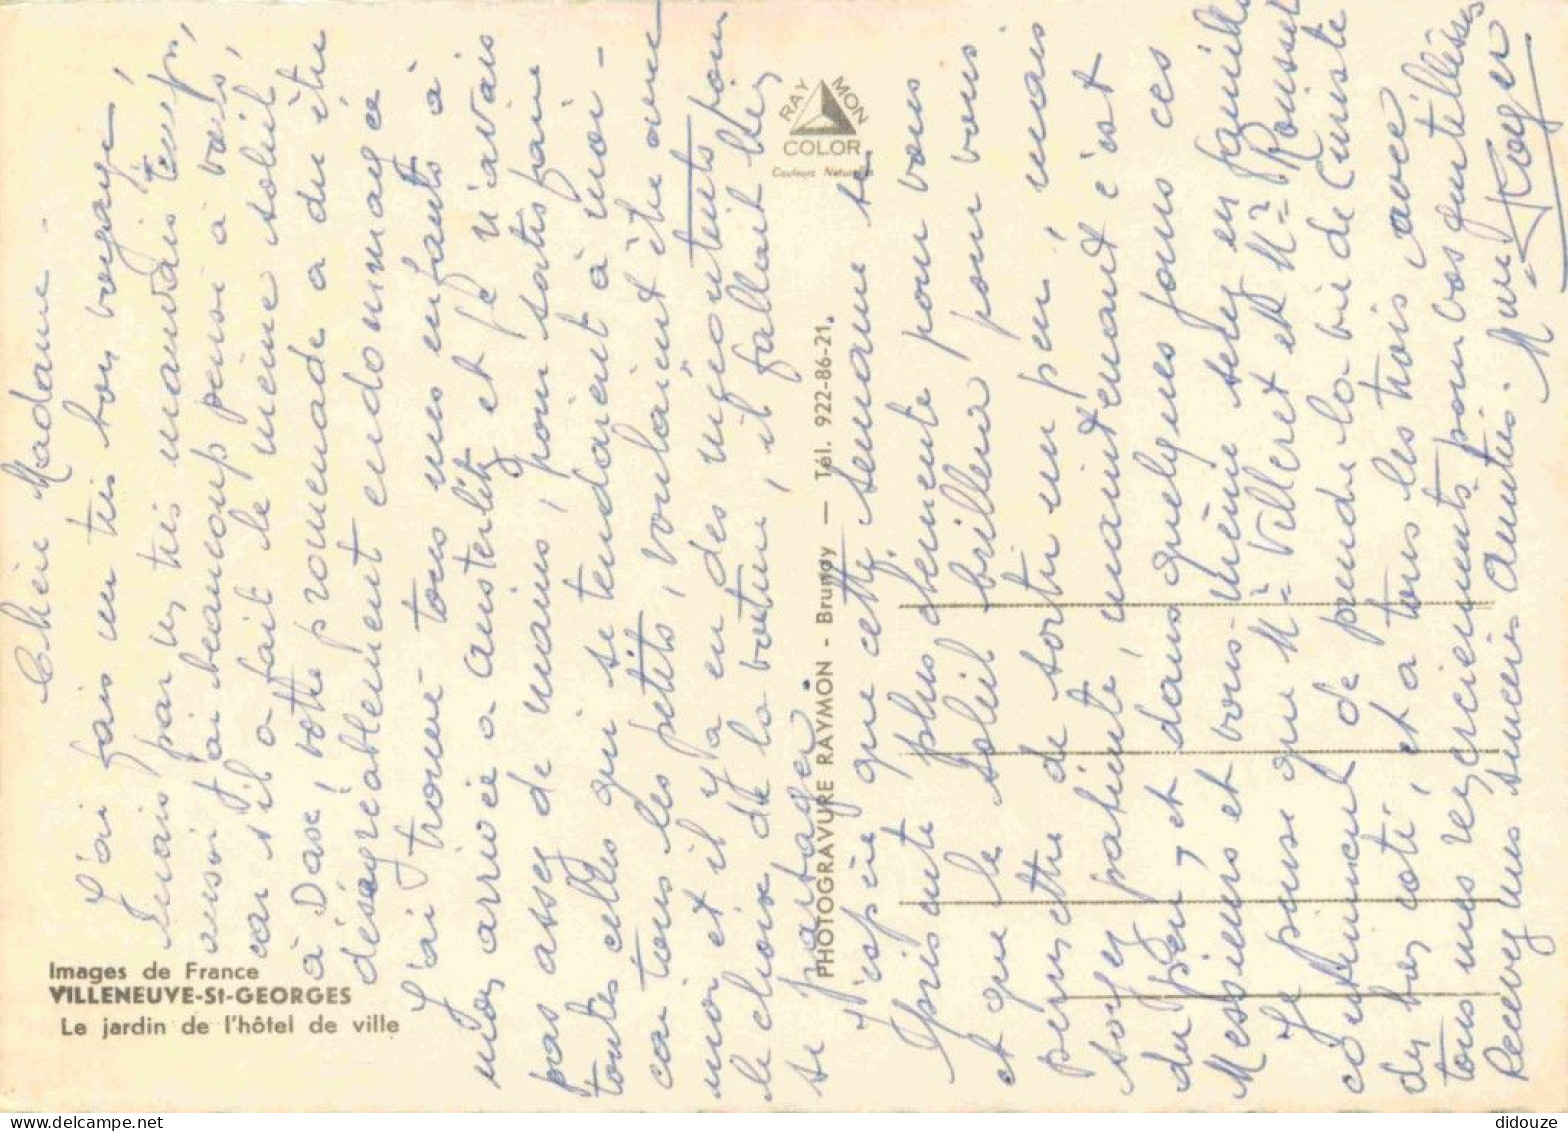 Images de France
VILLENEUVE-St-GEORGES
Le jardin de l'hôtel de ville
RAY MON
COLOR
Couleurs Naturelles
PHOTOGRAVURE RAYMON - Brunoy — Tél. 922-86-21
Chère Madame.
J'ai fais un très bon voyage,
mais par un très mauvais temps,
aussi j'ai beaucoup pensé à vous,
car s'il a fait le même soleil
à Dase, votre promenade a du être
désagreablement endommagée
J'ai trouvé tous mes enfants à
mon arrivée a austerlitz et je n'avais
pas assez de mains, pour sortis faire
toutes celles qui se tendaient à moi -
car tous les petits, voulaient être avec
moi et il y a eu des mécontents pour
le choix de la voiture, il fallait bien
se partager.
J'espère que cette semaine se
présente plus clémente pour vous
et que le soleil brillera pour vous
permettre de sortir un peu, mais
soyez patiente, maintenant c'est
du peu, et dans quelques jours ces
Messieurs et vous-même serez en famille
Je pense que Mr Villeret et Mr Rousset
continuent de prendre la vie de Curiste
des bon coté, et a tous les trois avec
tous mes remerciements pour vos gentillesses
Recevez mes sincères amitiés. Mme Roger
didouze